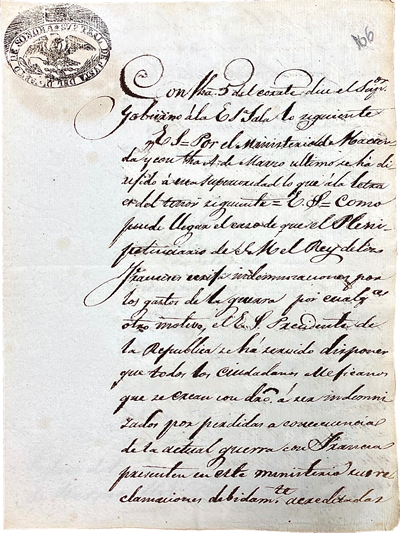 166
Con fha. 5 del corrte. dice el Supr.
Gobierno á la E. Sa. Sala lo siguiente
E. S. = Por el Ministerio de Hacien-
da y con fha. de Marzo ultimo se há di-
rijido á esta superioridad lo que á la letra
es del tenor siguiente = E. S. = Como
puede llegar el caso de que el Pleni-
potenciario de S. M. el Rey de los
Franceses indemnizaciones por
los gastos de la guerra por cualq.
otro motivo, el E. S. Presidente de
la Republica se há servido disponer
que todos los ciudadanos Mejicanos
que se crean con dro. á ser indemni-
zados por perdidas a consecuencia
de la actual guerra con Francia
presenten en este ministerio sus re-
clamaciones debidamte. acreditadas